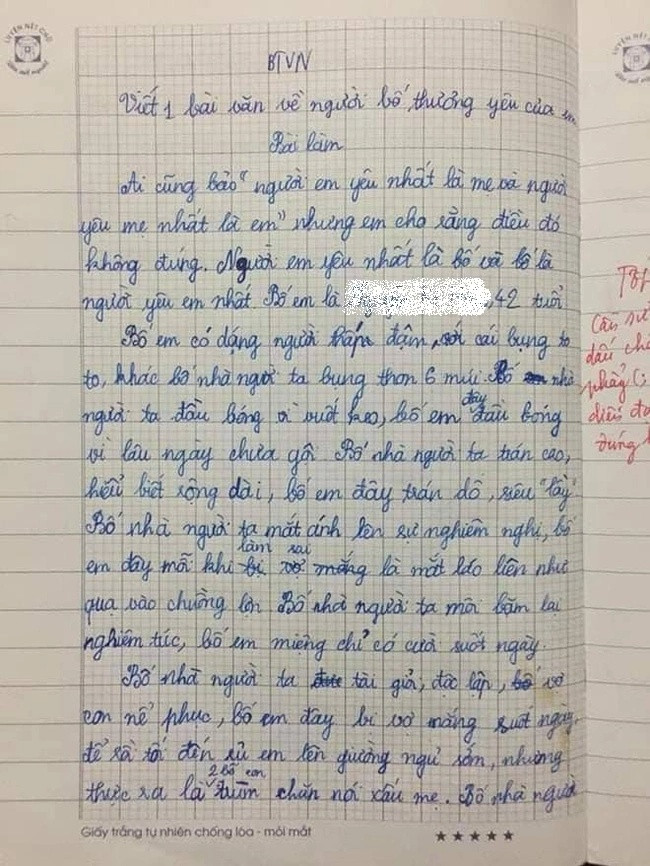 LUYỆN NÉT CHỮ
BTVN
Viết 1 bài văn về người bố thương yêu của em
Bài làm
Ai cũng bảo "người em yêu nhất là mẹ và người
yêu mẹ nhất là em" nhưng em cho rằng điều đó
không đúng. Người em yêu nhất là bố và bố là
người yêu em nhất. Bố em là , 42 tuổi
Bố em có dáng người thấp đậm, với cái bụng to
to, khác bố nhà người ta bụng thon 6 múi. Bố nhà
người ta đầu bóng vì vuốt keo, bố em đây đầu bóng
vì lâu ngày chưa gội Bố nhà người ta trán cao,
hiểu biết rộng dài, bố em đây trán dô, siêu "lầy"
Bố nhà người ta mắt ánh lên sự nghiêm nghị, bố
em đây mỗi khi làm sai là mắt láo liên như
qua vào chuồng lợn Bố nhà người ta môi bặm lại
nghiêm túc, bố em miệng chỉ có cười suốt ngày.
Bố nhà người ta tài giỏi, độc lập, vợ
con nể phục, bố em đây bị vợ mắng suốt ngày,
để rồi tối đến rủ em lên giường ngủ sớm, nhưng
thực ra là 2 bố con trùm chăn nói xấu mẹ. Bố nhà người
Giấy trắng tự nhiên chống lóa - mỏi mắt
★★★★★
dấu
phẩy (;